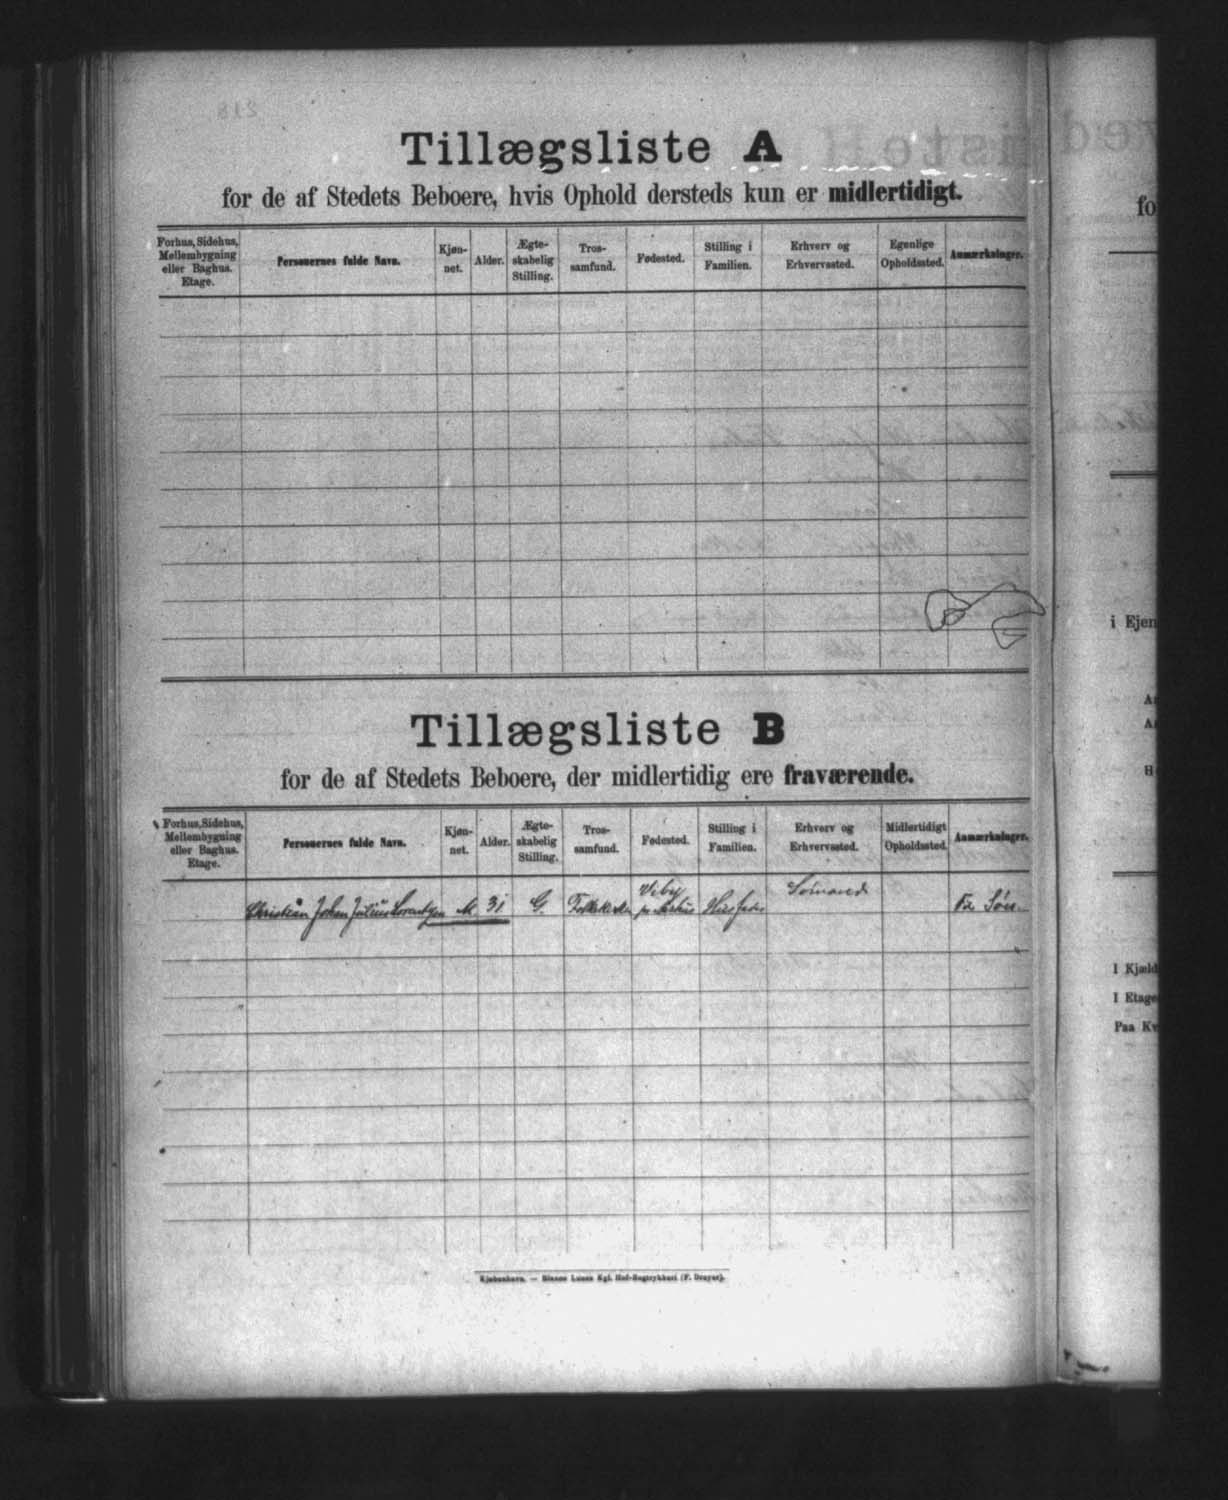 Tillægsliste A
for de af Stedets Beboere, hvis Ophold dersteds kun er midlertidigt.
Forhus, Sidehus, Mellembygning eller Baghus. Etage.
Personernes fulde Navn.
Kjøn- net.
Alder.
Ægte- skabelig Stilling.
Tros- samfund.
Fødested.
Stilling i Familien.
Erhverv og Erhvervssted.
Egenlige Opholdssted.
Anmærkninger.
Tillægsliste B
for de af Stedets Beboere, der midlertidig ere fraværende.
Forhus, Sidehus, Mellembygning eller Baghus. Etage.
Personernes fulde Navn.
Kjøn- net.
Alder.
Ægte- skabelig Stilling.
Tros- samfund.
Fødested.
Stilling i Familien.
Erhverv og Erhvervssted.
Midlertidigt Opholdssted.
Anmærkninger.
Christian Johan Julius Lorentzen M. 31 G. Folkekirken Viby pr Aarhus Husfader Sømand Søen
Kjøbenhavn. — Bianco Lunos Kgl. Hof-Bogtrykkeri (F. Dreyer).
fo
i Ejen
I Kjæld
I Etage
Paa Kv